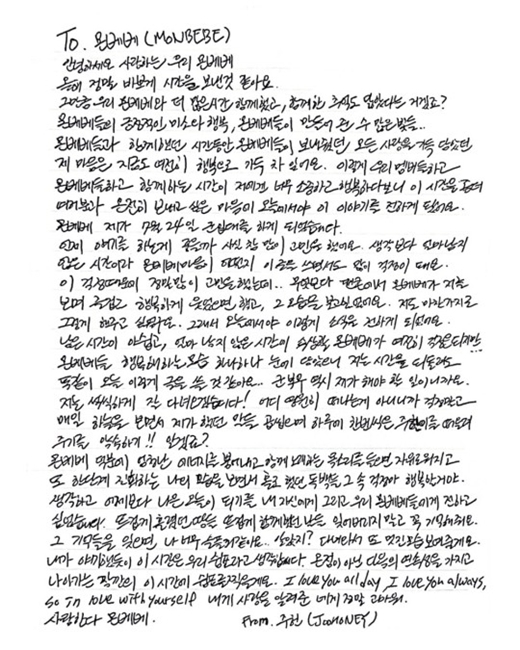 To. 몬베베 (MONBEBE)
안녕하세요 사랑하는 우리 몬베베
올해 정말 바쁘게 시간을 보낸것 같아요.
그만큼 우리 몬베베와 더 많은시간 함께했고, 함께한 추억도 많았다는 거겠죠?
몬베베들의 긍정적인 미소와 행복, 몬베베들이 만들어 준 수 많은 빛들..
몬베베들과 함께했던 시간동안 몬베베들이 보내줬던 모든 사랑을 가득 담았던
제 마음은 지금도 여전히 행복으로 가득 차 있어요. 이렇게 우리 멤버들하고
몬베베들하고 함께하는 시간이 저에겐 너무 소중하고 행복하다보니 이 시간을
온전히 보내고 싶은 마음에 오늘에서야 이 이야기를 전하게 됐어요.
몬베베 제가 7월 24일 군입대를 하게 되었습니다.
언제 얘기를 하는게 좋을까 사실 참 많이 고민을 했어요. 생각보다 얼마남지
않은 시간이라 몬베베마음이 어떨지 이 글을 쓰면서도 많이 걱정이 돼요.
이 걱정때문에 정말많이 고민을 했는데.. 무엇보다 몬베베가 저를
보며 즐겁고 행복하게 웃었으면 했고, 그 모습을 보고싶었어요. 저도 마찬가지로
그렇게 해주고 싶었구요. 그래서 오늘에서야 이렇게 소식을 전하게 되었어요.
남은 시간이 아쉽고, 얼마 남지 않은 시간이 몬베베가 여전히 걱정되지만...
몬베베들 행복해하는 모습 하나하나 눈에 담았으니 저는 시간을 되돌려도
똑같이 오늘 이렇게 글을 쓸 것 같아요.. 군복무 역시 제가 해야 할 일이니까요.
저는 씩씩하게 잘 다녀오겠습니다! 어디 영원히 떠나는게 아니니까 걱정말고
매일 하늘을 보면서 제가 했던 말들 곱씹으며 하루에 한번씩은 주헌이를 떠올려
주기를 약속하기!! 알겠죠?
몬베베 덕분에 엄청난 에너지를 뿜어내고 함께 노래하는 목소리를 들으면 자유로워지고
또 한단계 진화하는 나의 모습을 보면서 홀로 했던 독백들 그 속 걱정마 행복한거야.
생각하고 어제보다 나은 오늘이 되기를 내 자신에게 그리고 우리 몬베베들에게 전하고
싶었습니다. 뜨겁게 흘렸던 땀들 뜨겁게 함께했던 날들 잊어버리지 말고 꼭 기억해줘요.
그 기억들을 잊으면 나 너무 슬플거같아요.. 알았지? 다녀와서 또 멋진모습 보여줄게요.
내가 얘기했듯이 이 시간은 우리 쉼표라고 생각합니다. 온점이 아닌 다음의 연속성을 가지고
나아가는 잠깐의 이 시간에 쉼표로찍을게요. I love you all day, I love you always,
So In love with yourself 내게 사랑을 알려준 네게 정말 고마워.
사랑한다 몬베베. From. 주헌 (JOOHONEY)